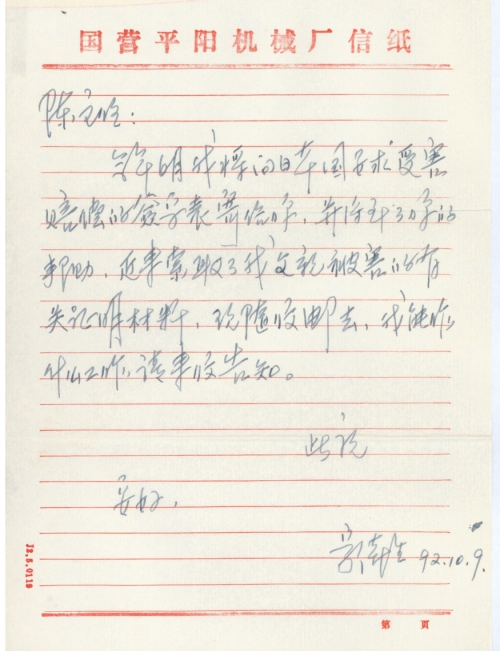 国营平阳机械厂信纸
陈
今年6月我将向日本国要求受害
赔偿的签字表寄给你，并得到了你的
帮助，近来索取了我父亲被害的有
关证明材料，现随信邮去，我能作
什么工作，请来信告知。
此祝
安好，
92.10.9.
J2.8.0119
第 页